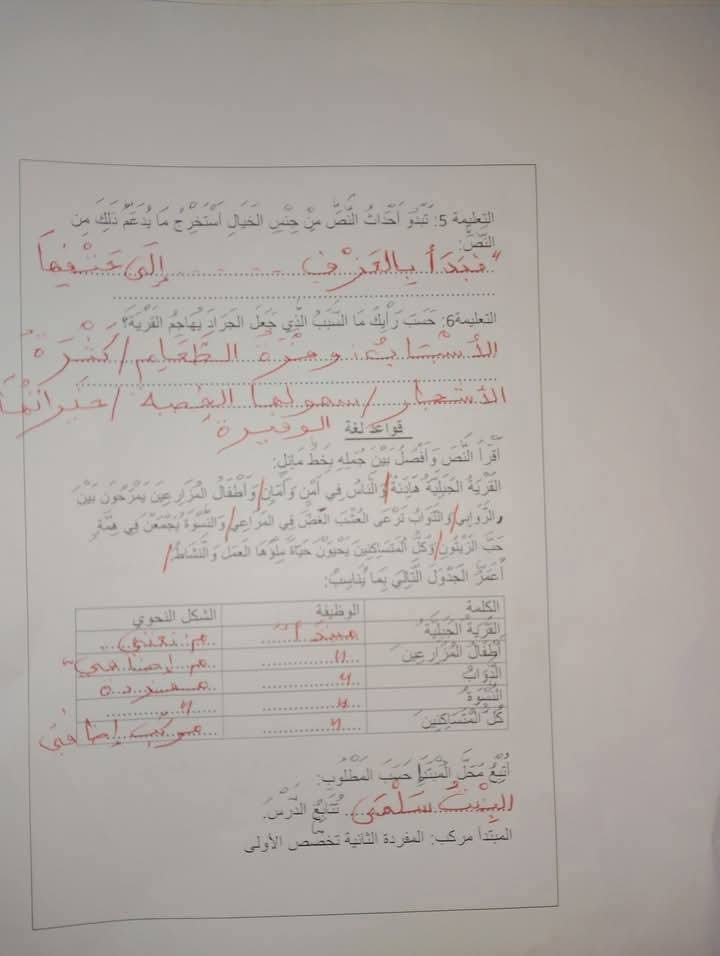 التعليمة 5: تَبْدُو أَحْدَاثُ النَّصِّ مِنْ جِنْسِ الخَيَالِ أَسْتَخْرِجُ مَا يُدَعِّمُ ذَلِكَ مِن
النَّصِّ:
"فبَدَأَ بِالعَزْفِ ........ إِلَى عَنْفِهَا
التعليمة6: حَسَبَ رَأْيِكَ مَا السَّبَبُ الَّذِي جَعَلَ الجَرَادَ يُهَاجِمُ القَرْيَةَ؟
الأَسْبَابُ: وفْرَةُ الطَّعَامِ / كَثْرَةُ
الأشجار / سهولها الخصبة / خيراتها
الوفيرة
قواعد لغة
أَقْرَأُ النَّصَّ وَأَفْصُلُ بَيْنَ جُمَلِهِ بِخَطٍّ مَائِلٍ:
القَرْيَةُ الجَبَلِيَّةُ هَادِئَةٌ / وَالنَّاسُ فِي أَمْنٍ وَأَمَانٍ / وَأَطْفَالُ المُزَارِعِينَ يَمْرَحُونَ بَيْنَ
الرَّوَابِي / وَالدَّوَابُّ تَرْعَى العُشْبَ الغَضَّ فِي المَرَاعِي / وَالنِّسْوَةُ يَجْمَعْنَ فِي هِمَّةٍ
حَبَّ الزَّيْتُونِ / وَكُلُّ المُتَسَاكِنِينَ يَحْيَوْنَ حَيَاةً مِلْؤُهَا العَمَلُ وَالنَّشَاطُ. /
أُعَمِّرُ الجَدْوَلَ التَّالِيَ بِمَا يُنَاسِبُ:
الكلمة الوظيفة الشكل النحوي
القَرْيَةُ الجَبَلِيَّةُ مبتدأ م. نعتي
أَطْفَالُ المُزَارِعِينَ // م. إضافي
الدَّوَابُّ // مفردة
النِّسْوَةُ // //
كُلُّ المُتَسَاكِنِينَ // مركب إضافي
أُتَبِّعُ مَحَلَّ المُبْتَدَإِ حَسَبَ المَطْلُوبِ:
البِنْتُ سَلْمَى تُتَابِعُ الدَّرْسَ.
المبتدأ مركب: المفردة الثانية تخصّص الأولى